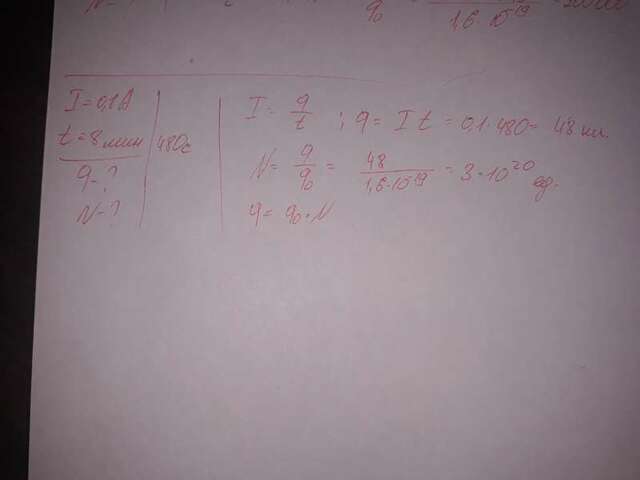 1,6·10⁻¹⁹
I = 0,1 А
t = 8 мин | 480с
q - ?
N - ?
I = q/t ; q = I t = 0,1·480 = 48 кл.
N = q/q₀ = 48/1,6·10⁻¹⁹ = 3·10²⁰ ед.
q = q₀·N